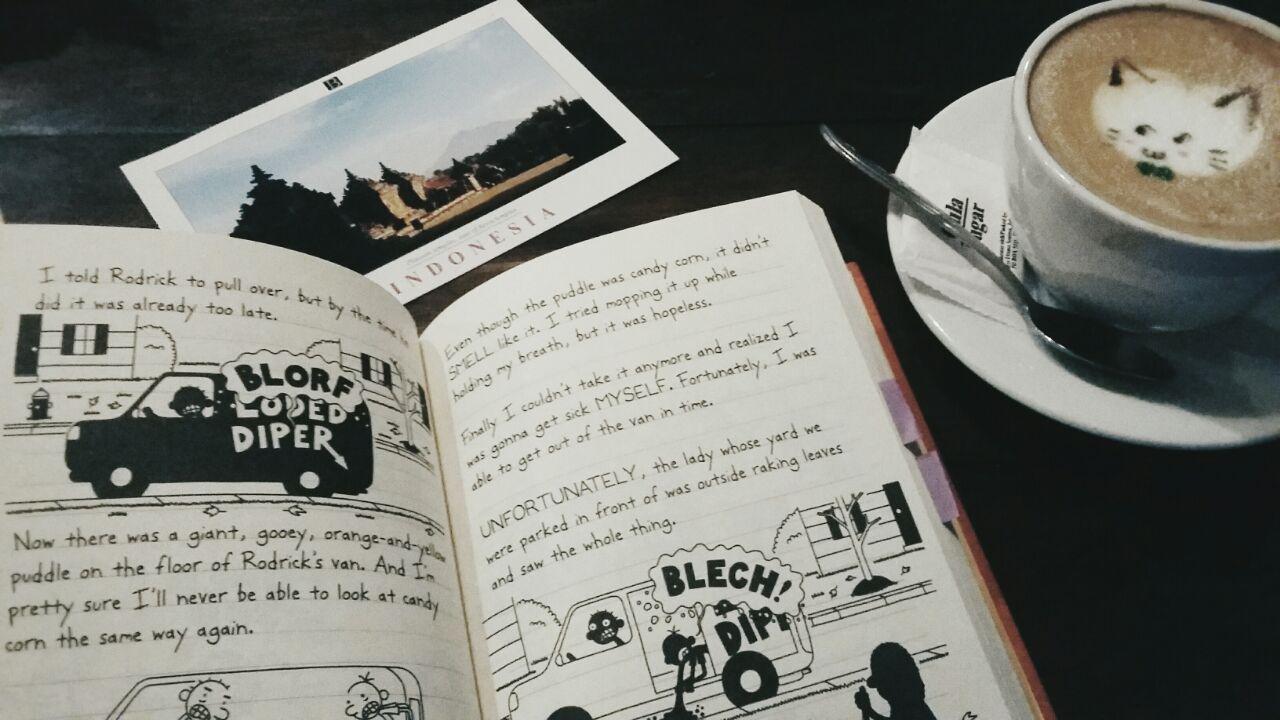 INDONESIA
I told Rodrick to pull over, but by the time
did it was already too late.
BLORF
LODED
DIPER
Now there was a giant, gooey, orange-and-yellow
puddle on the floor of Rodrick's van. And I'm
pretty sure I'll never be able to look at candy
corn the same way again.
Even though the puddle was candy corn, it didn't
SMELL like it. I tried mopping it up while
holding my breath, but it was hopeless.
Finally I couldn't take it anymore and realized I
was gonna get sick MYSELF. Fortunately, I was
able to get out of the van in time.
UNFORTUNATELY, the lady whose yard we
were parked in front of was outside raking leaves
and saw the whole thing.
BLECH!